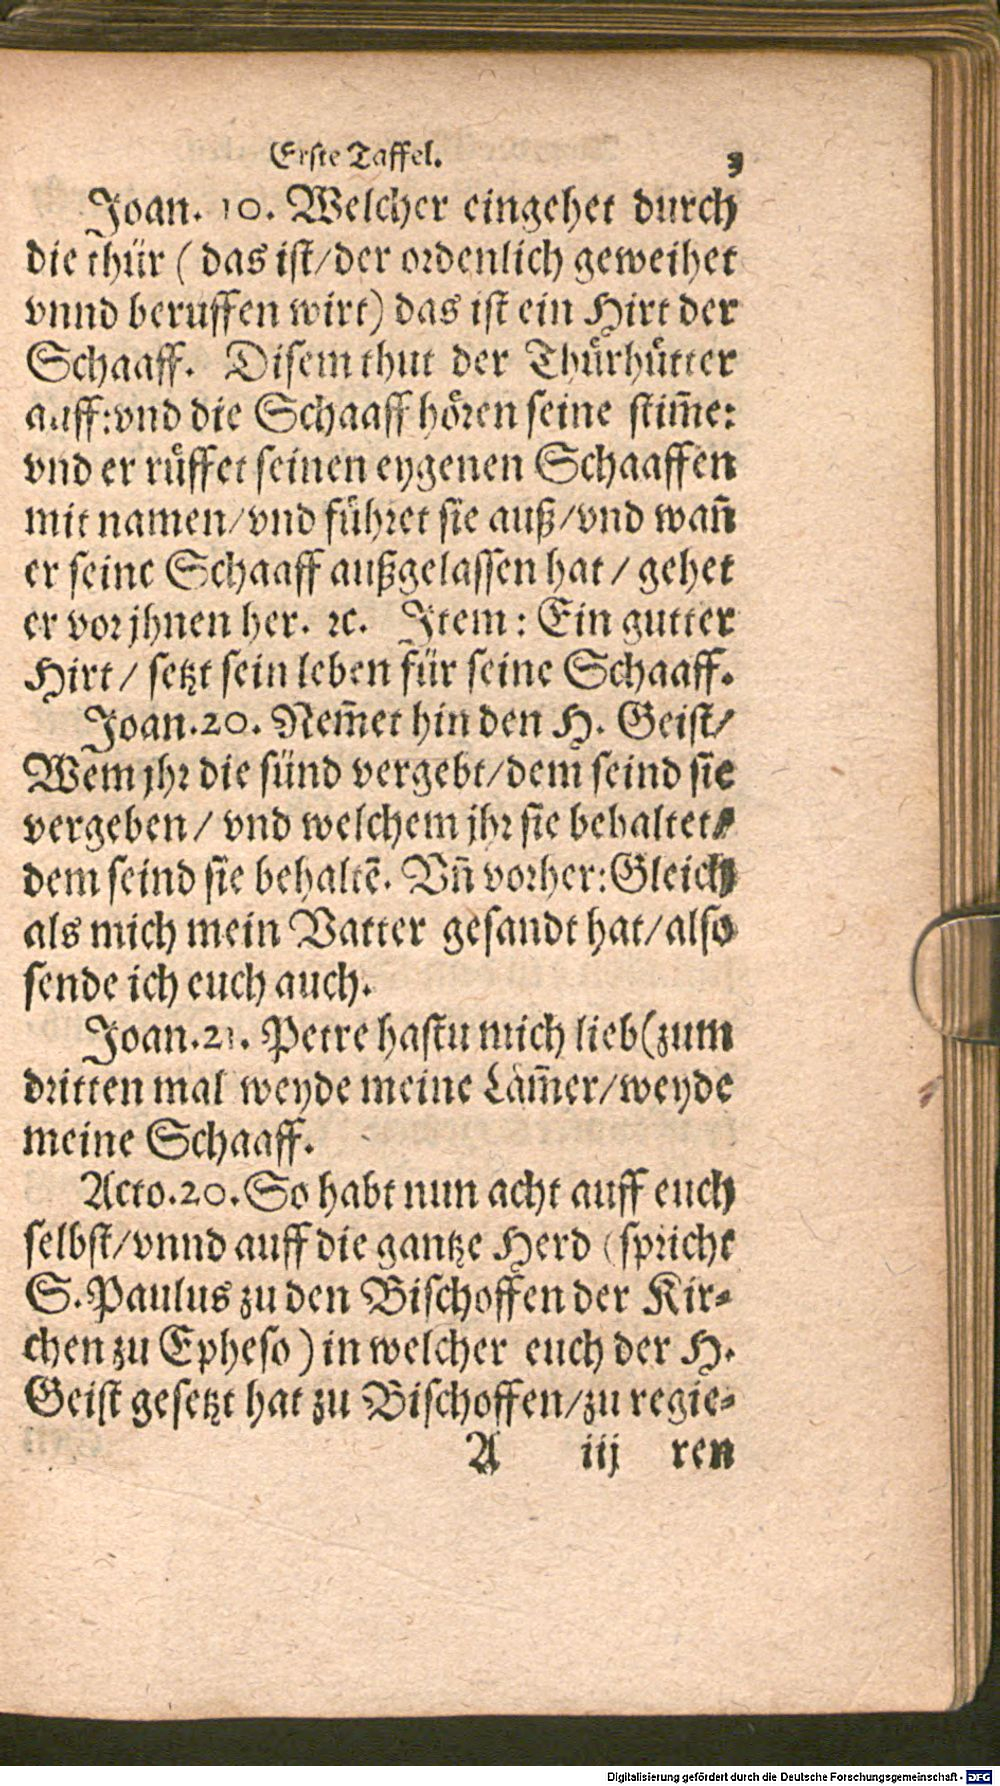 Erste Taffel. 3
Joan. 10. Welcher eingehet durch
die thür ( das ist/der ordenlich geweihet
vnnd beruffen wirt) das ist ein Hirt der
Schaaff. Disem thut der Thuͤrhuͤtter
auff: vnd die Schaaff hoͤren seine stim̃e:
vnd er ruͤffet seinen eygenen Schaaffen
mit namen/vnd fuͤhret sie auß/vnd wañ
er seine Schaaff außgelassen hat / gehet
er vor jhnen her. ꝛc. Item: Ein gutter
Hirt / setzt sein leben für seine Schaaff.
Joan.20. Nem̃et hin den H. Geist/
Wem jhr die sünd vergebt/dem seind sie
vergeben/ vnd welchem jhr sie behaltet/
dem seind sie behaltẽ. Vñ vorher: Gleich
als mich mein Vatter gesandt hat/also
sende ich euch auch.
Joan.21. Petre hastu mich lieb (zum
dritten mal weyde meine Läm̃er/weyde
meine Schaaff.
Acto.20. So habt nun acht auff euch
selbst/vnnd auff die gantze Herd (spricht
S. Paulus zu den Bischoffen der Kir⸗
chen zu Epheso ) in welcher euch der H.
Geist gesetzt hat zu Bischoffen/zu regie⸗
A iij ren
Digitalisierung gefördert durch die Deutsche Forschungsgemeinschaft - DFG